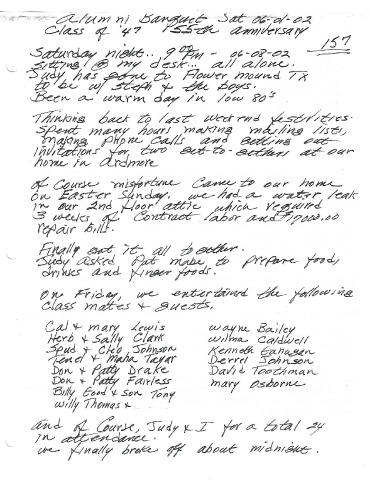 Alumni Banquet Sat 06-01-02
Class of '47 55th anniversary
157
Saturday night.. 9:00 pm - 06-08-02
Sitting @ my desk... all alone.
Judy has gone to Flower mound TX
to be w/ Steph & the boys.
Been a warm day in low 80's
Thinking back to last weekend festivities.
Spent many hours making mailing lists,
making phone calls and getting out
invitations for two get-to-gethers at our
home in Ardmore
Of course misfortune came to our home
on Easter Sunday, we had a water leak
in our 2nd floor attic which required
3 weeks of contract labor and $17000.00
repair bills.
Finally got it all together.
Judy asked Pat to prepare food,
drinks and finger foods.
On Friday, we entertained the following
class mates & guests.
Cal & Mary Lewis
Herb & Sally Clark
Spud & Cleo Johnson
Don & Patty Drake
Don & Patty Fairless
Billy Food & son Tony
Willy Thomas &
Wayne Bailey
Wilma Caldwell
Kenneth
Derrel Johnson
David Toothman
Mary Osborne
and of course, Judy & I for a total 24
in attendance.
we finally broke off about midnight.